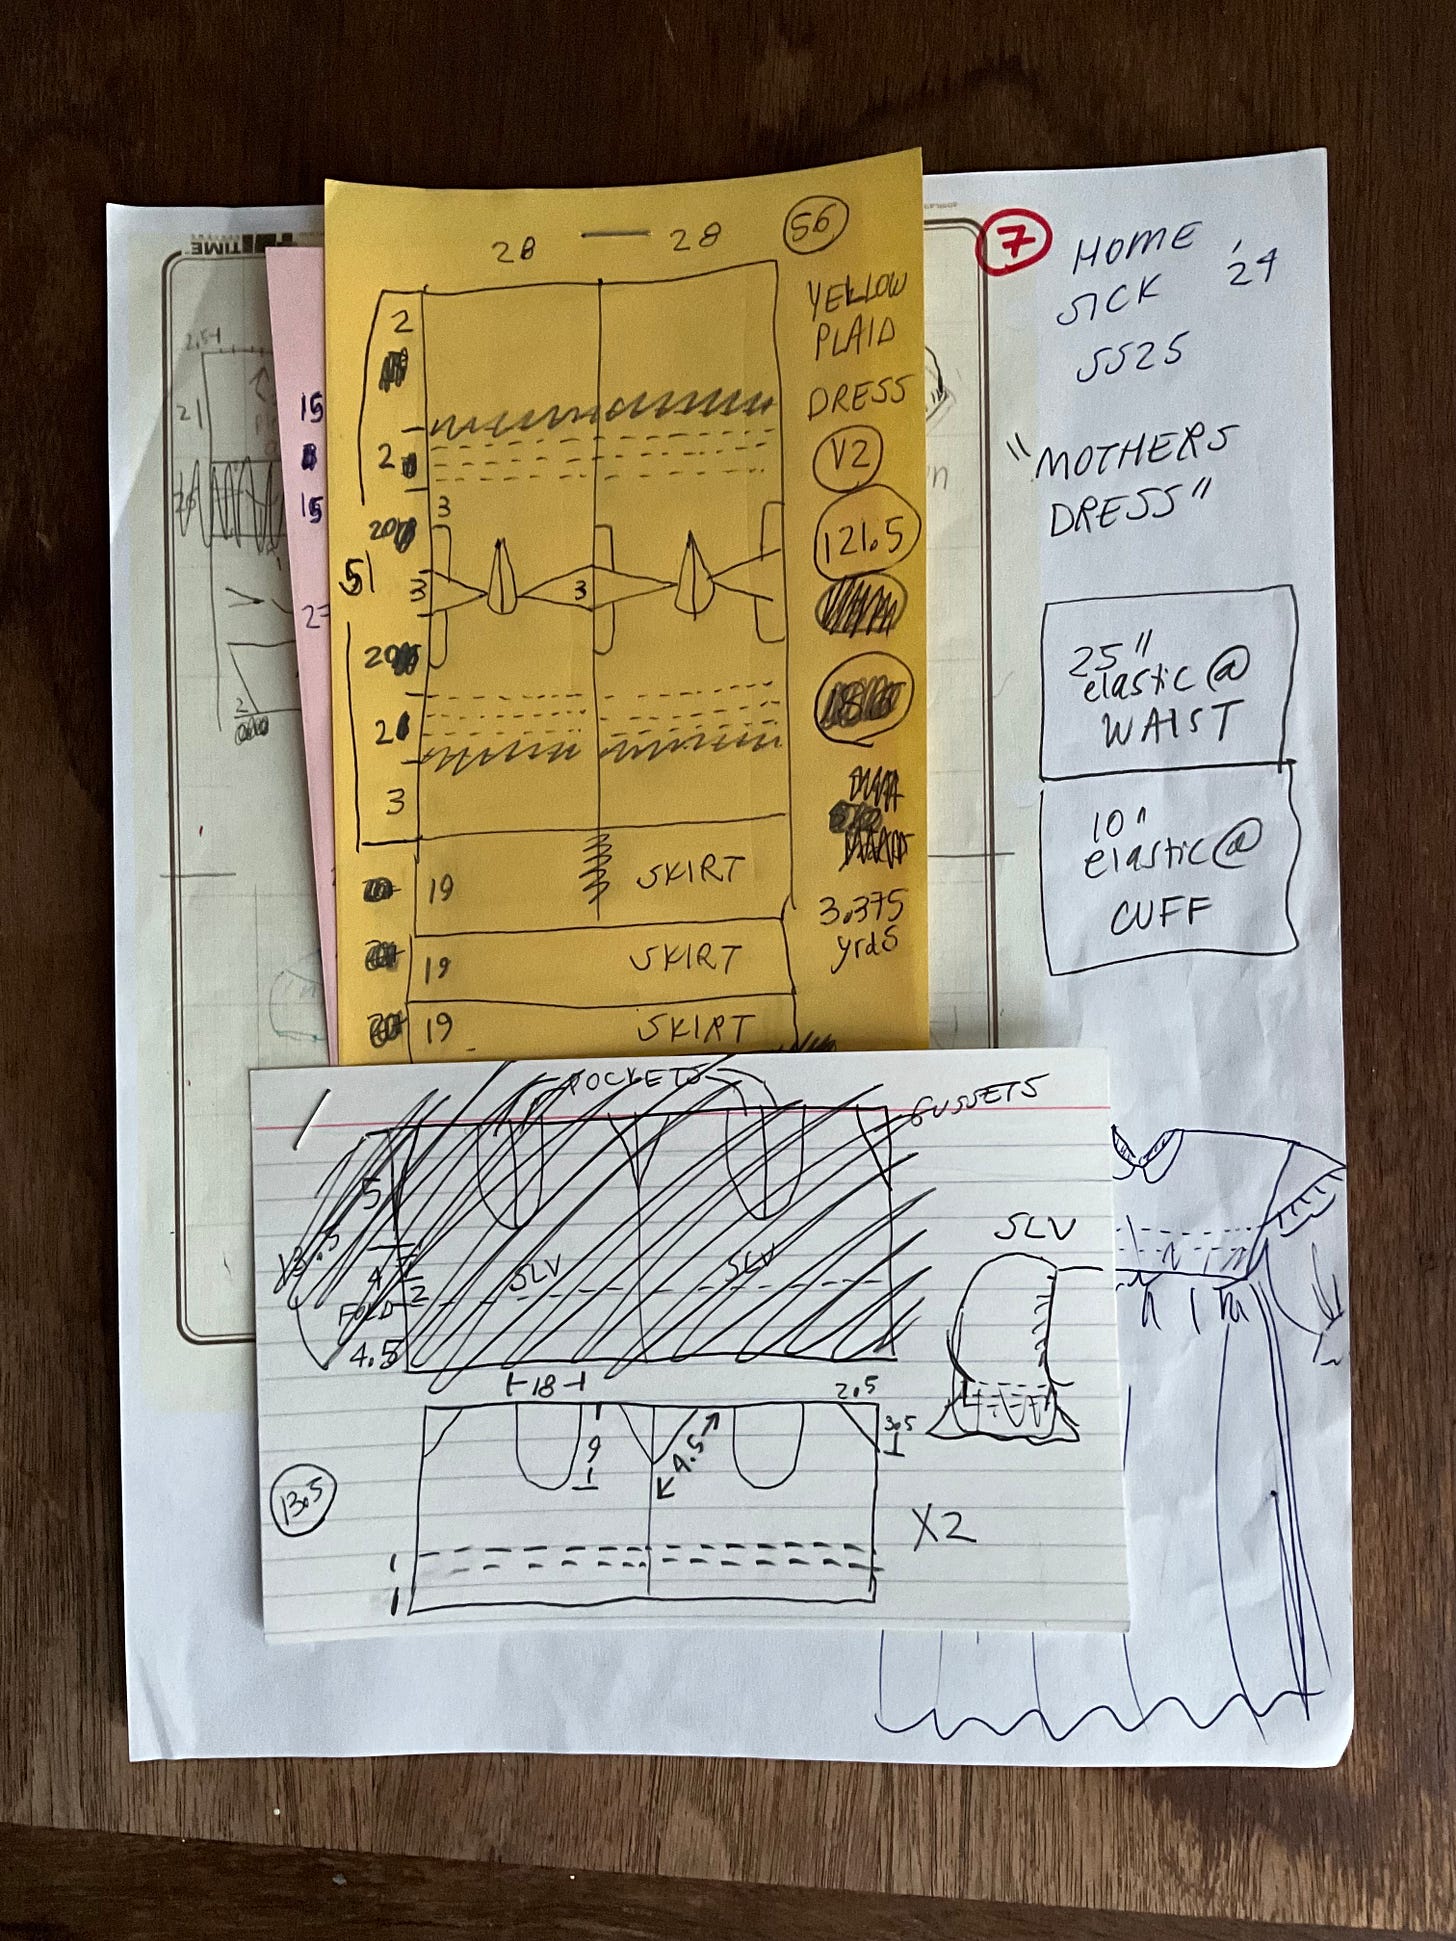 28 — 28
56
YELLOW
PLAID
DRESS
V2
121.5
3.375
yrds
2
2
3
20
51
3
3
20
2
3
19
SKIRT
19
SKIRT
19
SKIRT
7
HOME
SICK '24
SS25
"MOTHERS
DRESS"
25"
elastic @
WAIST
10"
elastic @
CUFF
TIME
2.5
21
2
15
8
15
POCKETS
GUSSETS
5
13.5
4
2
FOLD
4.5
SLV
SLV
SLV
18
2.5
9
4.5
3.5
13.5
1
1
X2